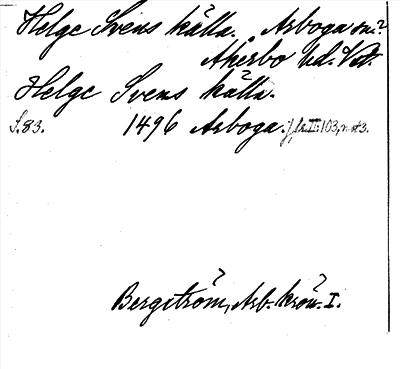 Helge Svens källa. Arboga sn.?
Åkerbo hd. Vstm.
Helge Svens källa.
S. 83. 1496 Arboga. jfr II: 103, not 3.
Bergström, Arb. krön. I.